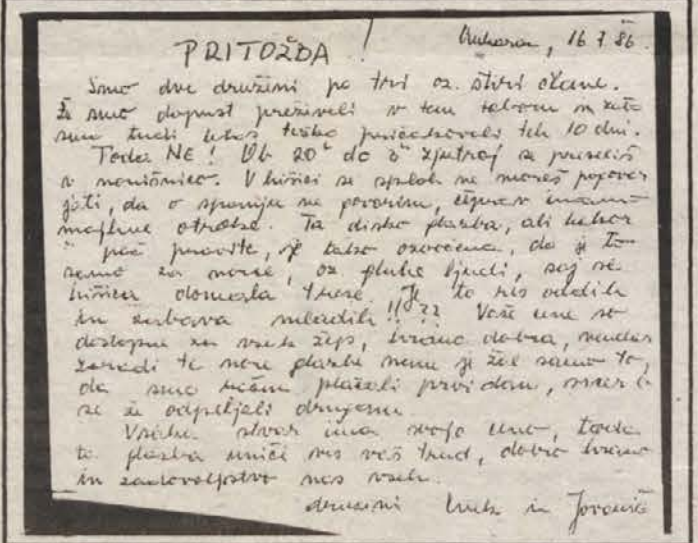 PRITOŽBA!
16.7.86.
Smo dve družini po tri oz. štiri člane.
Že smo dopust preživeli v tem taboru in zato
smo tudi letos težko pričakovali teh 10 dni.
Toda NE! Ob 20h do 3h zjutraj se preseliš
v norišnico. V hišici se sploh ne moreš pogovar
jati, da o spanju ne govorim, čeprav imamo
majhne otroke. Ta disko glasba, ali kakor
pač pravite, je tako ozvočena, da je to
samo za norce, oz gluhe ljudi, saj se
hišica domala trese. Je to res oddih
in zabava mladih!!?? Vaše cene so
dostopne za vsak žep, hrana dobra, vendar
zaradi te nore glasbe nam je žal samo to,
da smo račun plačali prvi dan, sicer bi
se že odpeljali drugam.
Vsaka stvar ima svojo ceno, toda
ta glasba uniči ves vaš trud, dobro hrano
in zadovoljstvo nas vseh.
družini in Jovanič